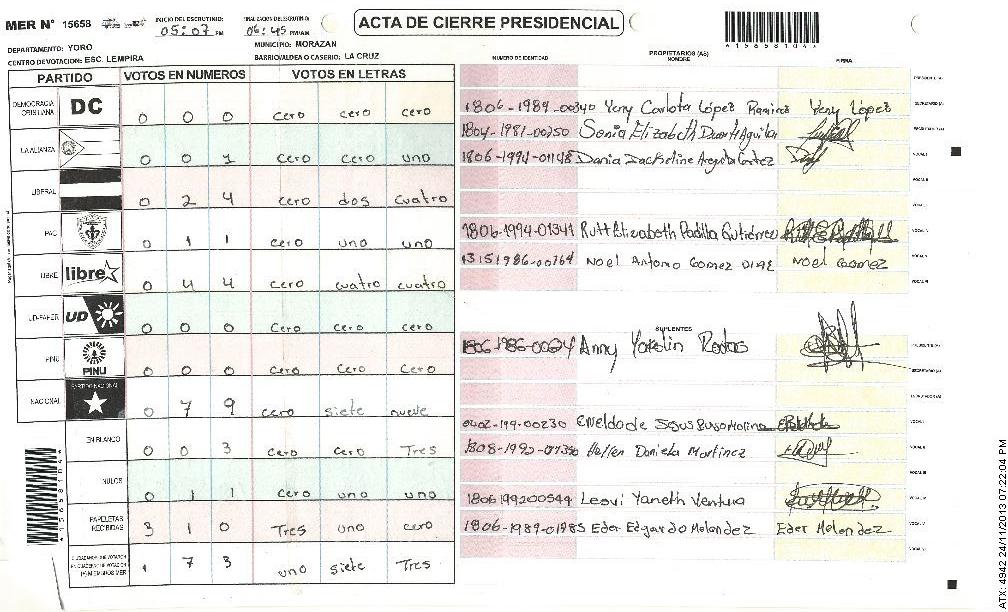 MER N° 15658
INICIO DEL ESCRUTINIO: 05:07 PM
FINALIZACION DEL ESCRUTINIO: 06:45 PM/AM
ACTA DE CIERRE PRESIDENCIAL
DEPARTAMENTO: YORO
MUNICIPIO: MORAZAN
CENTRO DE VOTACION: ESC. LEMPIRA
BARRIO/ALDEA O CASERIO: LA CRUZ
PARTIDO VOTOS EN NUMEROS VOTOS EN LETRAS
DEMOCRACIA CRISTIANA DC 0 0 0 cero cero cero
LA ALIANZA 0 0 1 cero cero uno
LIBERAL 0 2 4 cero dos cuatro
PAC 0 1 1 cero uno uno
LIBRE libre 0 4 4 cero cuatro cuatro
UD-FAPER UD 0 0 0 cero cero cero
PINU PINU 0 0 0 cero cero cero
NACIONAL PARTIDO NACIONAL 0 7 9 cero siete nueve
EN BLANCO 0 0 3 cero cero Tres
NULOS 0 1 1 cero uno uno
PAPELETAS RECIBIDAS 3 1 0 Tres uno cero
1 7 3 uno siete Tres
NUMERO DE IDENTIDAD
PROPIETARIOS (AS)
NOMBRE
FIRMA
PRESIDENTE (A)
1806-1989-00340 Yeny Carlota López Ramirez Yeny López SECRETARIO (A)
1804-1981-00250 Sonia Elizabeth Duarte Aguilar ESCRUTADOR (A)
1806-1994-01148 Dania Jackeline VOCAL I
VOCAL II
1806-1994-01341 Rutt Elizabeth Padilla Gutiérrez
Noel Antonio Gomez Noel Gomez
SUPLENTES
Anny Yokelin Rodas PRESIDENTE (A)
SECRETARIO (A)
ESCRUTADOR (A)
VOCAL I
Hellen Daniela Martinez
1806199200544 Lesvi Yaneth Ventura
1806-1989-01985 Eder Edgardo Melendez Eder Melendez
*15658104*
ATX: 4942 24/11/2013 07:22:04 PM